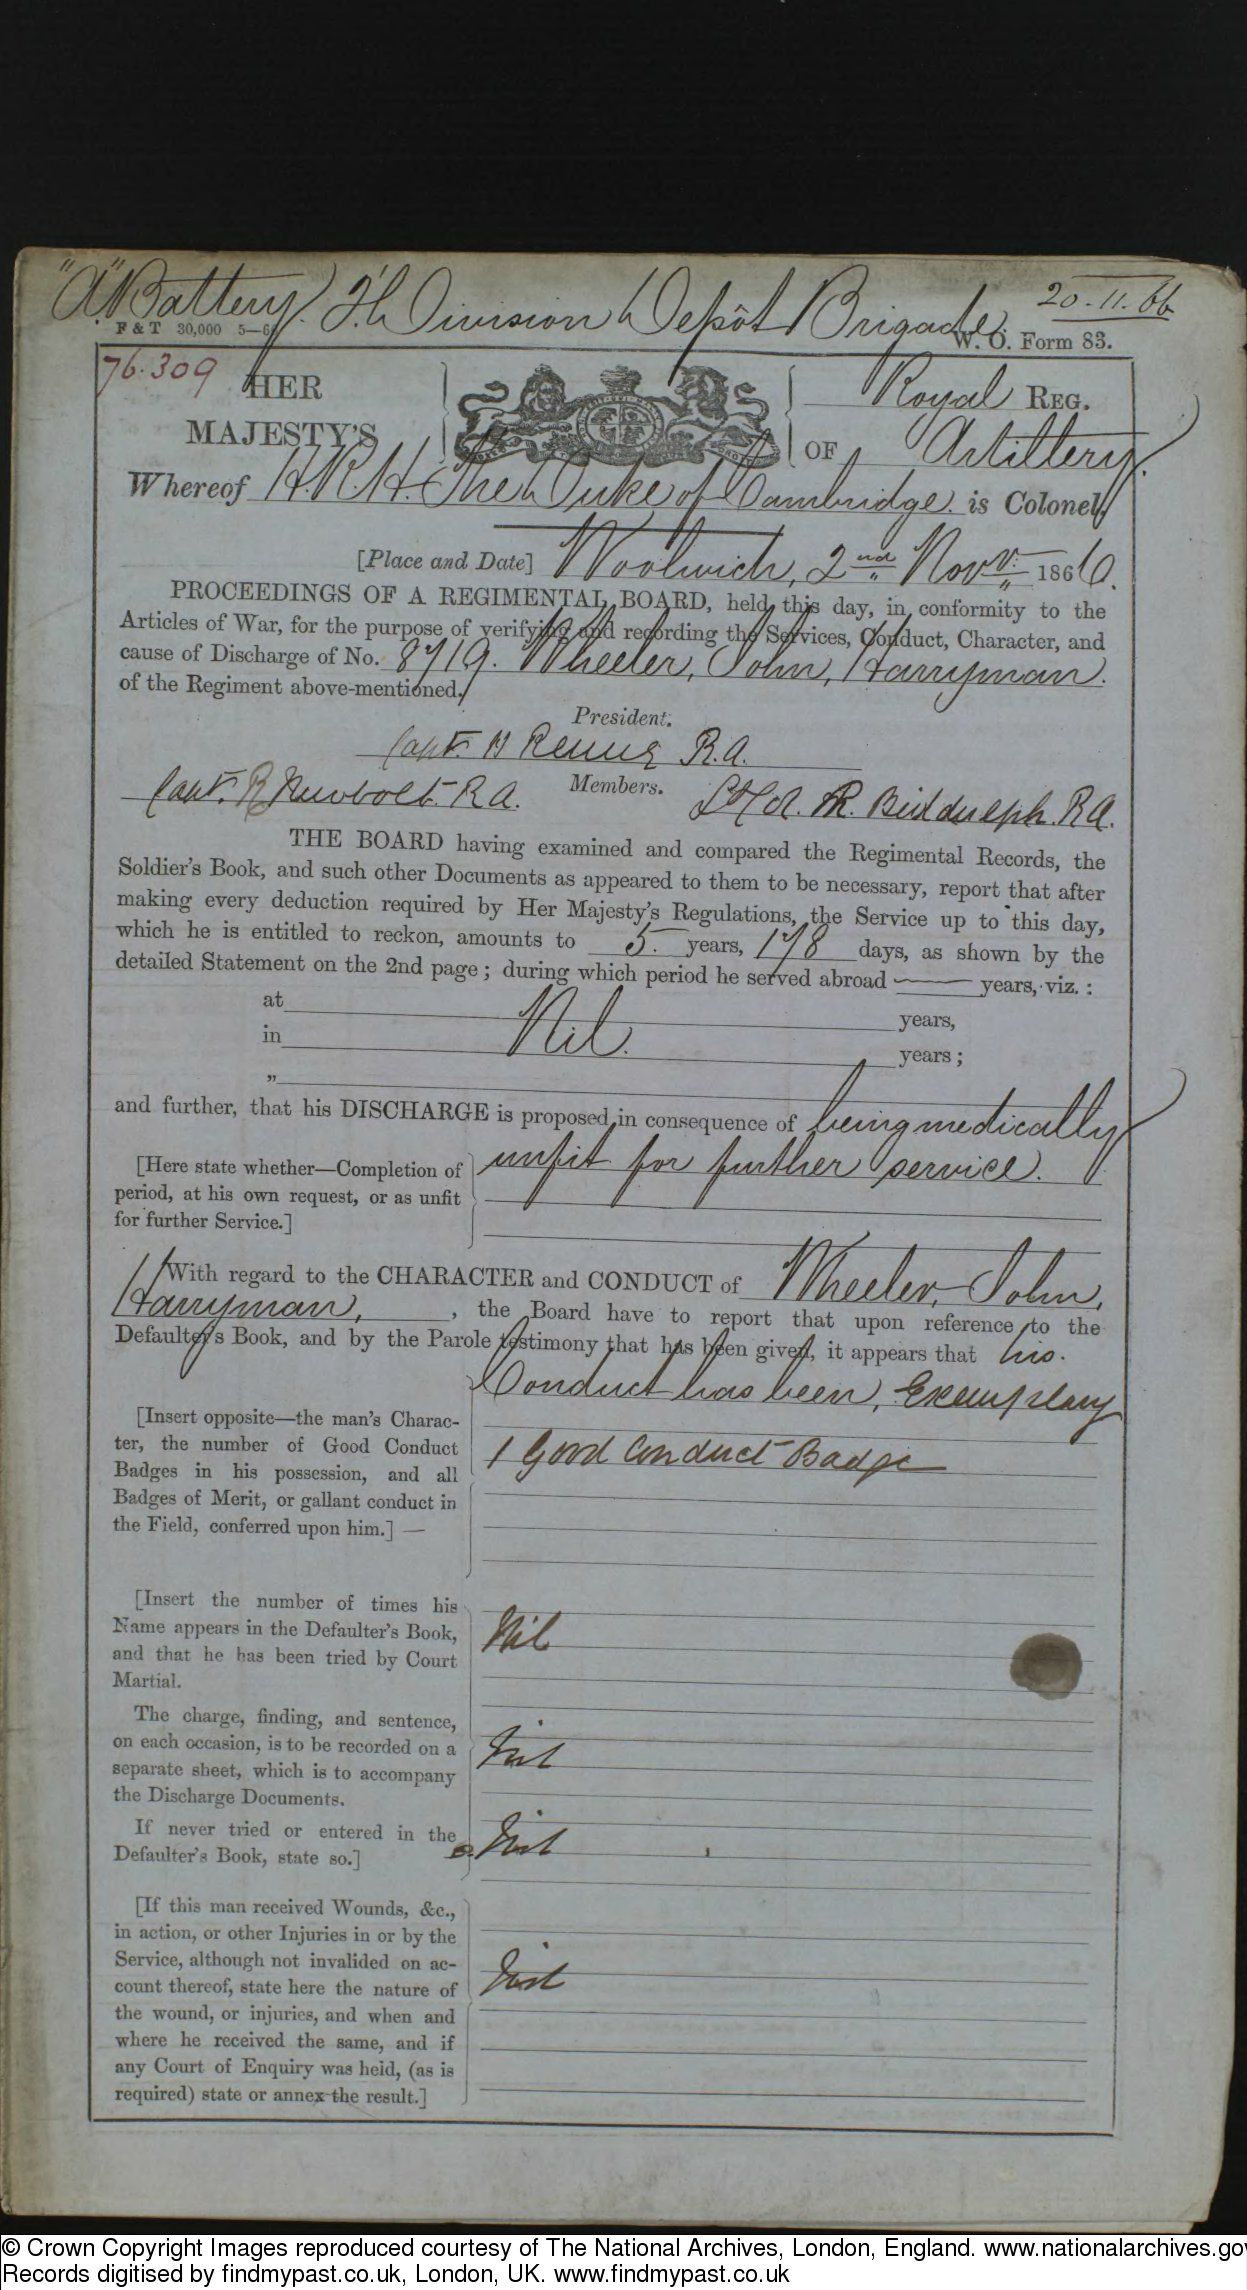 "A" Battery. 2nd Division Depôt Brigade. 20.11.66
F & T 30,000 5—6 W. O. Form 83.
76.309 HER Royal REG.
MAJESTY'S OF Artillery.
Whereof H.R.H. The Duke of Cambridge. is Colonel.
[Place and Date] Woolwich, 2nd Novr. 1866.
PROCEEDINGS OF A REGIMENTAL BOARD, held this day, in conformity to the
Articles of War, for the purpose of verifying and recording the Services, Conduct, Character, and
cause of Discharge of No. 8719. Wheeler, John, Harryman.
of the Regiment above-mentioned.
President.
Capt. R.A.
Members.
Capt. R Newbolt R A. R. Biddulph. R A.
THE BOARD having examined and compared the Regimental Records, the
Soldier's Book, and such other Documents as appeared to them to be necessary, report that after
making every deduction required by Her Majesty's Regulations, the Service up to this day,
which he is entitled to reckon, amounts to 5. years, 178 days, as shown by the
detailed Statement on the 2nd page; during which period he served abroad — years, viz.:
at years,
in Nil. years;
„
and further, that his DISCHARGE is proposed in consequence of being medically
[Here state whether—Completion of unfit for further service.
period, at his own request, or as unfit
for further Service.]
With regard to the CHARACTER and CONDUCT of Wheeler, John,
Harryman, , the Board have to report that upon reference to the
Defaulter's Book, and by the Parole testimony that has been given, it appears that his.
Conduct has been, Exemplary
[Insert opposite—the man's Charac-
ter, the number of Good Conduct 1 Good Conduct Badge
Badges in his possession, and all
Badges of Merit, or gallant conduct in
the Field, conferred upon him.] —
[Insert the number of times his
Name appears in the Defaulter's Book, Nil
and that he has been tried by Court
Martial.
The charge, finding, and sentence,
on each occasion, is to be recorded on a Nil
separate sheet, which is to accompany
the Discharge Documents.
If never tried or entered in the Nil
Defaulter's Book, state so.]
[If this man received Wounds, &c.,
in action, or other Injuries in or by the
Service, although not invalided on ac- Nil
count thereof, state here the nature of
the wound, or injuries, and when and
where he received the same, and if
any Court of Enquiry was held, (as is
required) state or annex the result.]
© Crown Copyright Images reproduced courtesy of The National Archives, London, England. www.nationalarchives.gov
Records digitised by findmypast.co.uk, London, UK. www.findmypast.co.uk